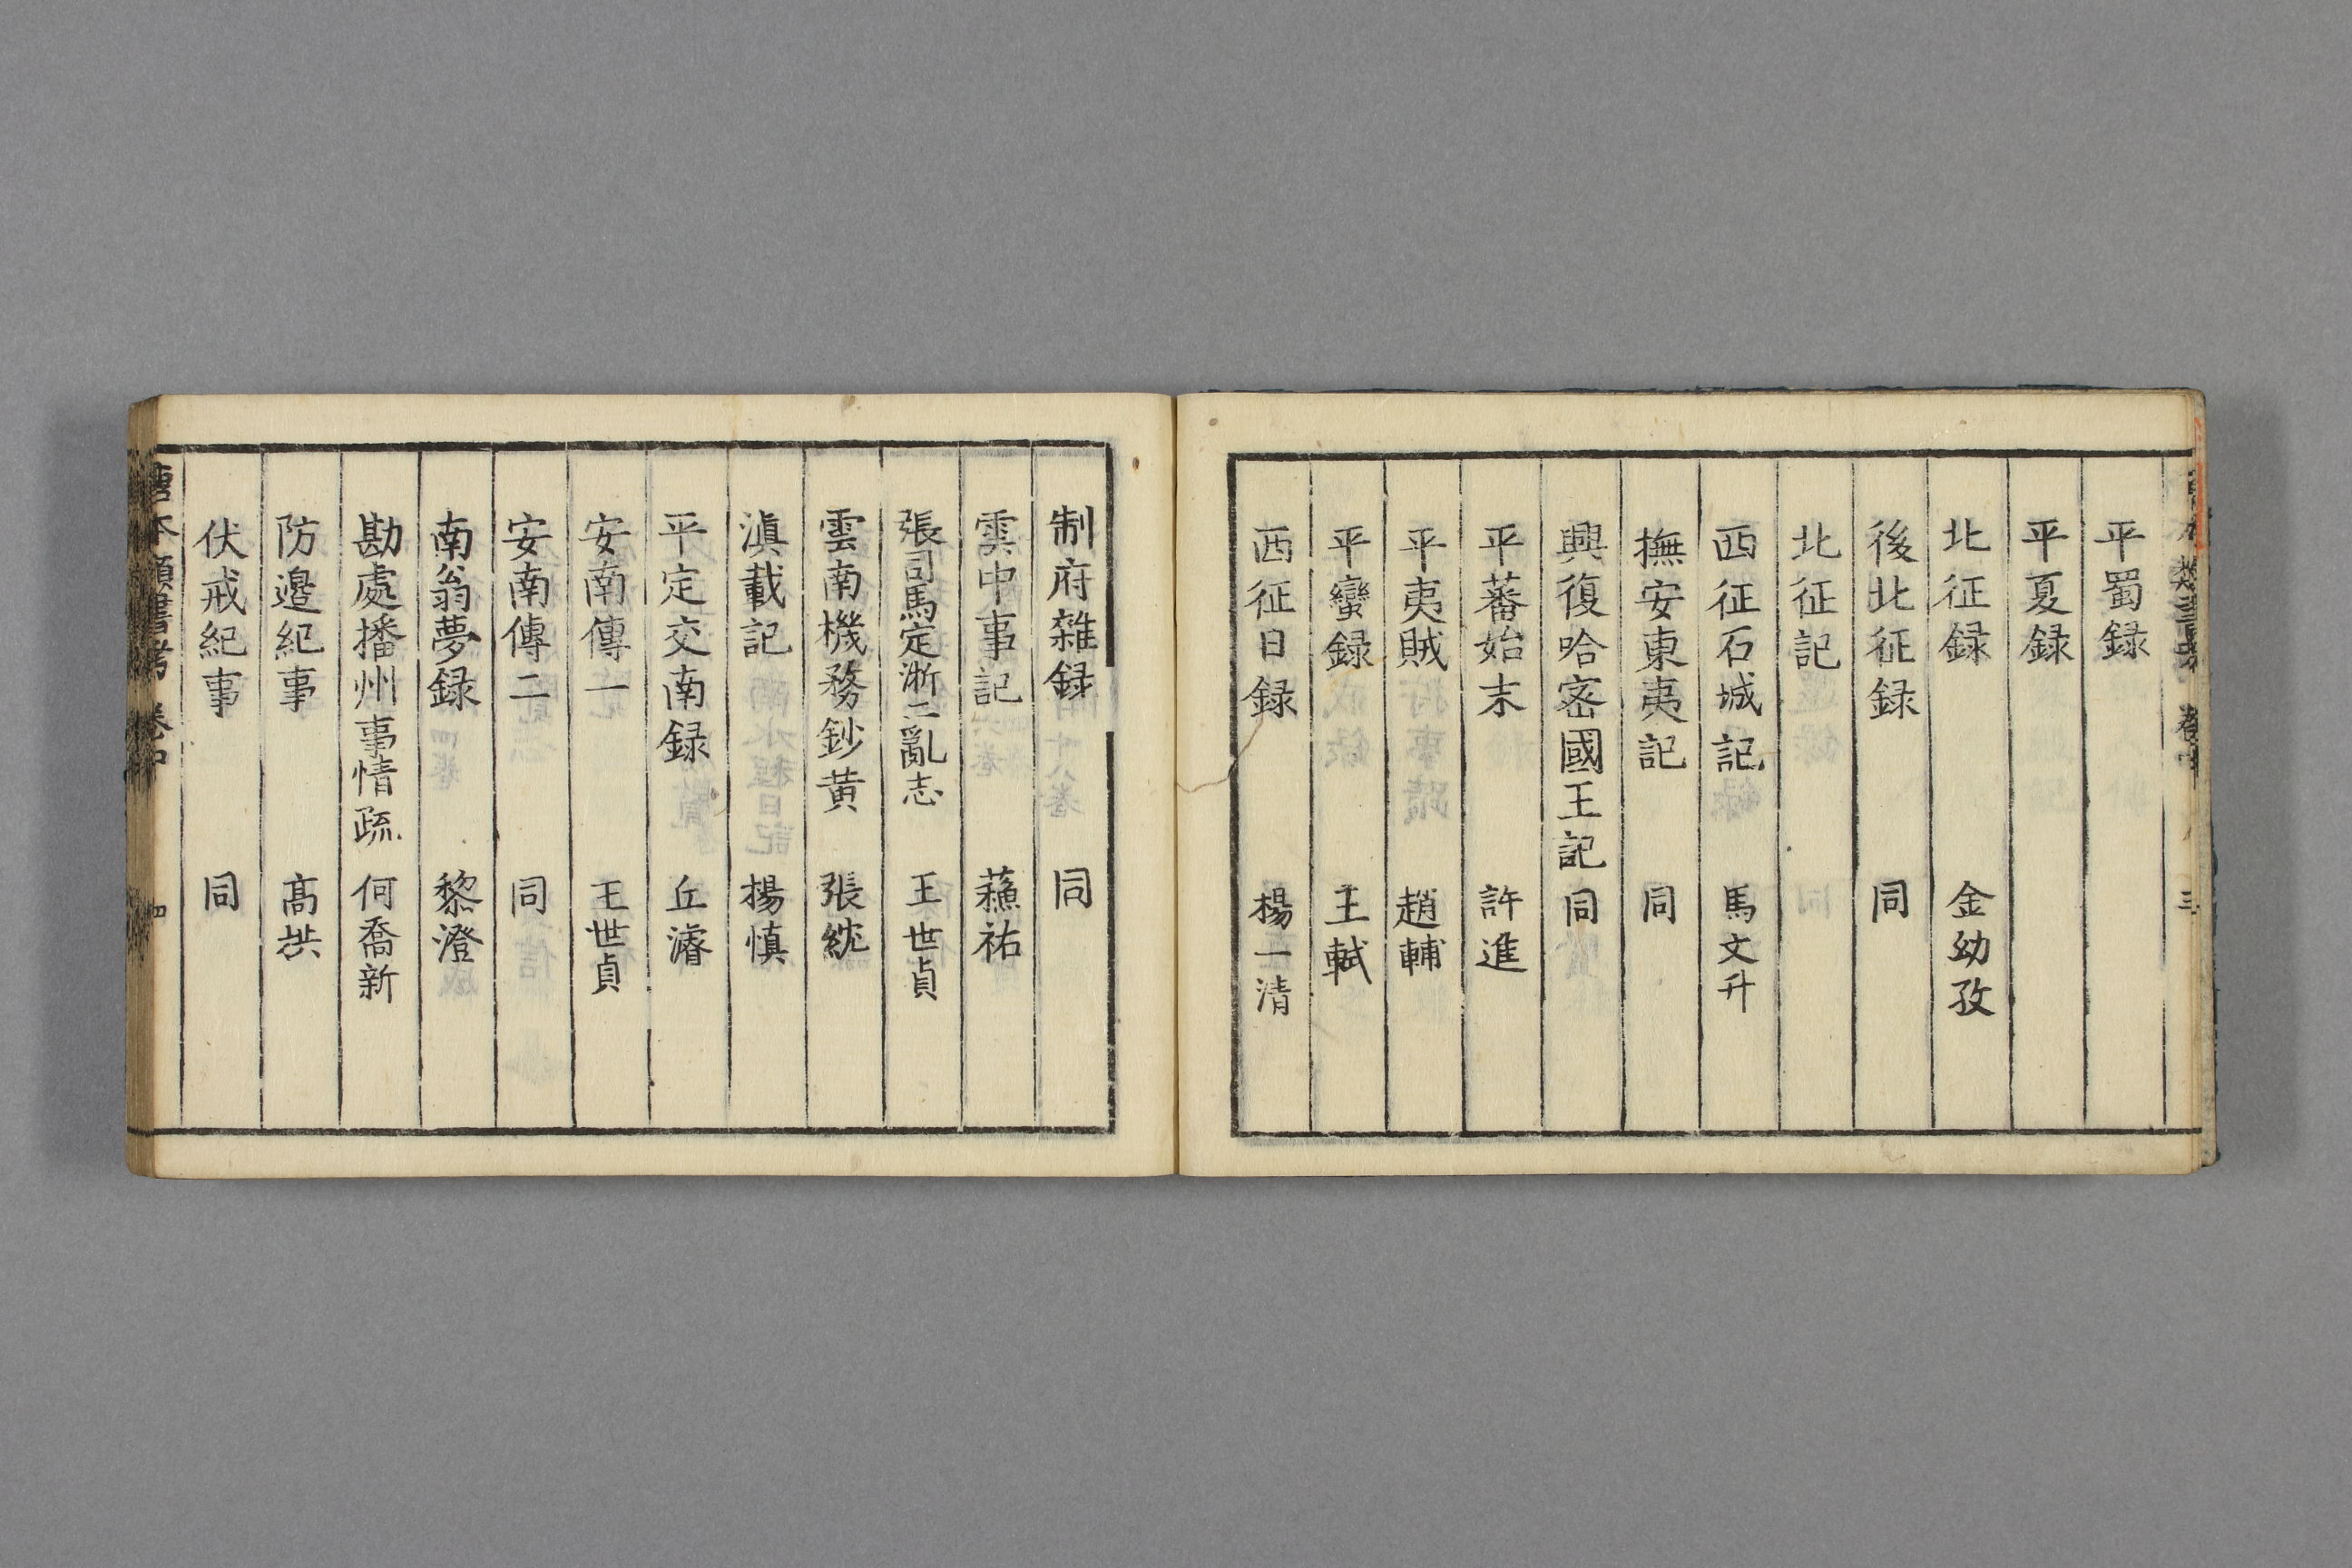 平蜀録
平夏録
北征録 金幼孜
後北征録 同
北征記
西征石城記 馬文升
撫安東夷記 同
興復哈密國王記 同
平蕃始末 許進
平夷賊 趙輔
平蠻録 王軾
西征日録 楊一清
制府雜録 同
雲中事記 蘓祐
張司馬定浙二亂志 王世貞
雲南機務鈔黄 張紞
滇載記 楊慎
平定交南録 丘濬
安南傳一 王世貞
安南傳二 同
南翁夢録 黎澄
勘處播州事情疏 何喬新
防邊紀事 髙拱
伏戎紀事 同
本類書考 卷中 四